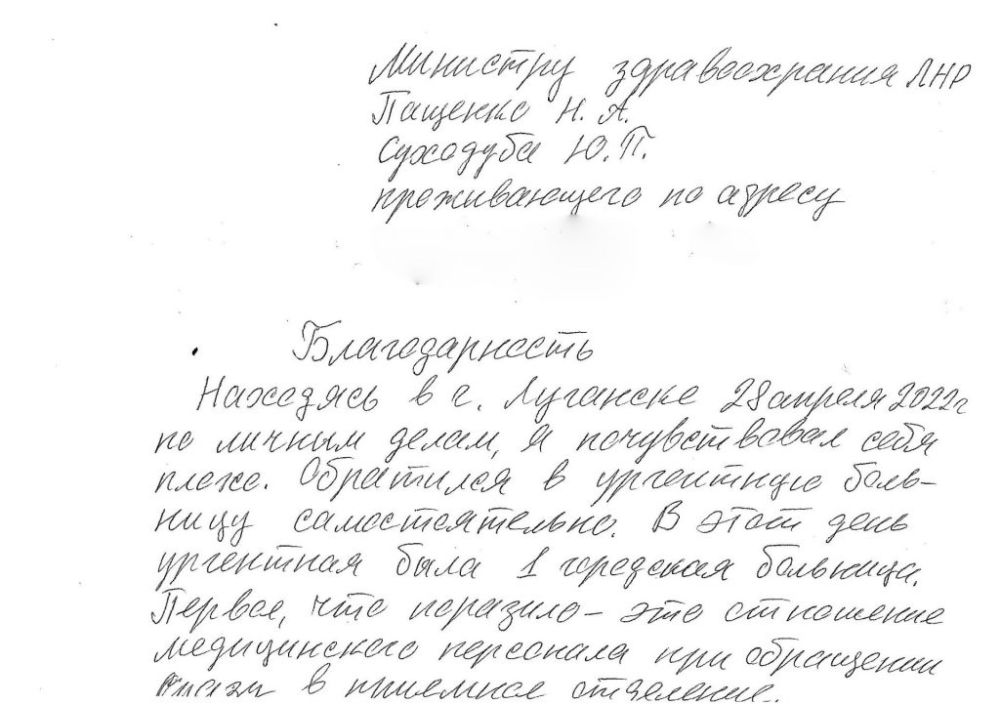 Министру здравоохрания ЛНР
Пащенко Н. А.
Суходуба Ю.П.
преживающего по адресу
Благодарность
Находясь в г. Луганске 28 апреля 2022г
по личным делам, я почувствовал себя
плохо. Обратился в ургентную боль-
ницу самостоятельно. В этот день
ургентная была 1 городская больница.
Первое, что поразило – это отношение
медицинского персонала при обращении
в приемное отделение.